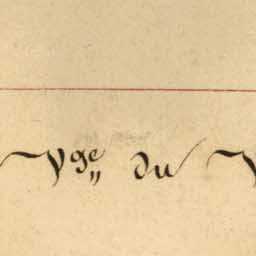 Vge du